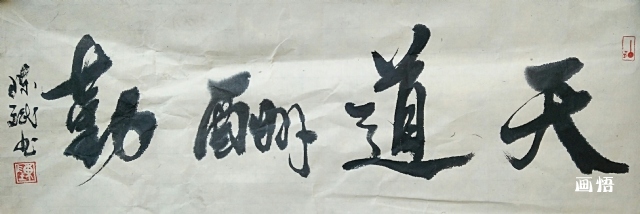 天道酬勤
画悟